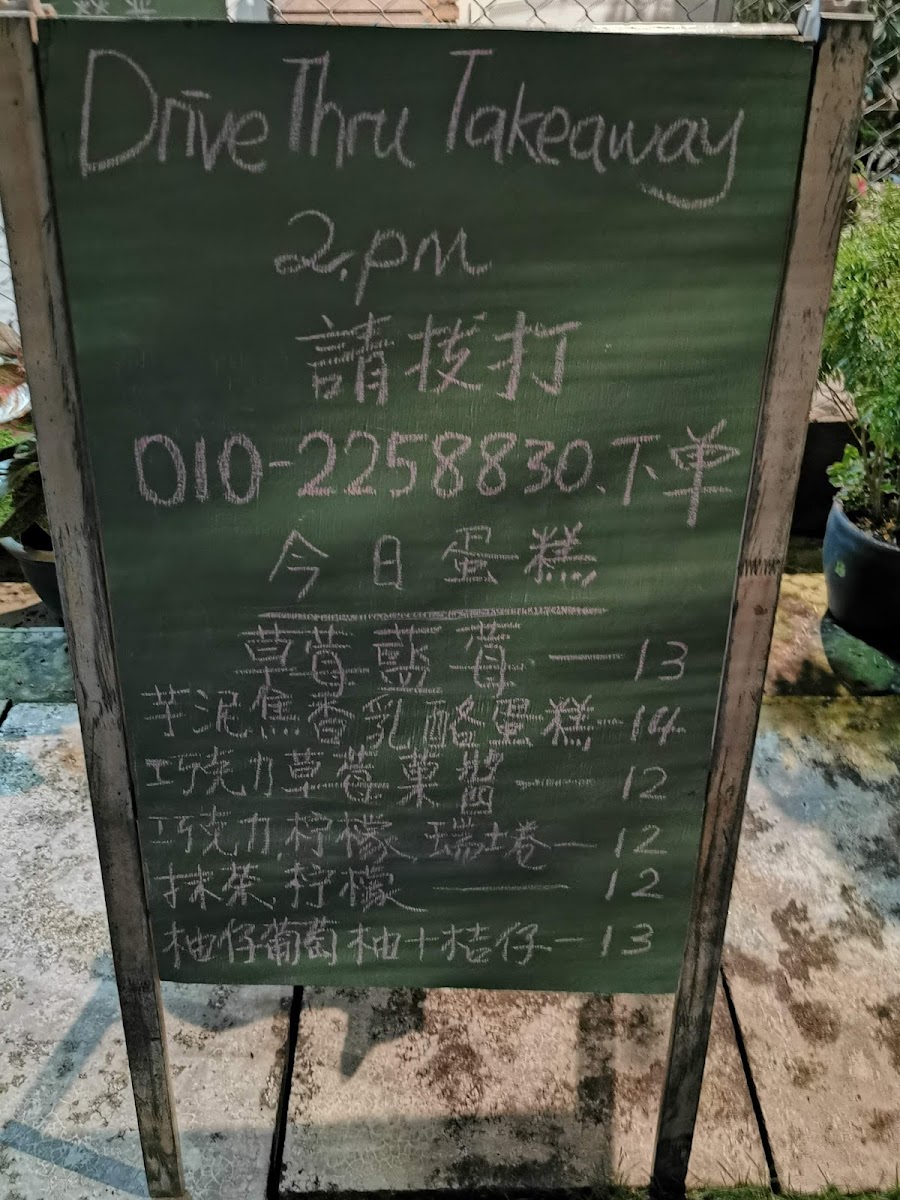 Drive Thru Takeaway
2.pm
請拔打
010-2258830、下单
今日蛋糕
草莓藍莓 — 13
芋泥焦香乳酪蛋糕 - 14
巧克力草莓菓醬 — 12
巧克力,柠檬,瑞士卷 — 12
抹茶,柠檬 — 12
柚仔葡萄柚+桔仔 - 13